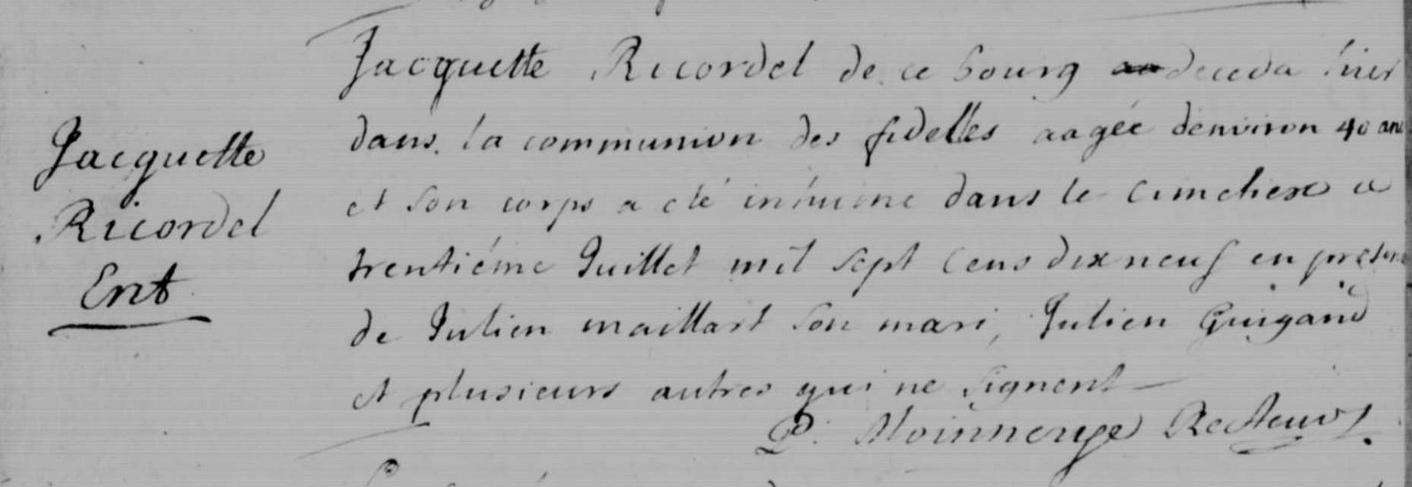 Jacquette
Ricordel
Ent
Jacquette Ricordel de ce bourg deceda hier
dans la communion des fidelles aagée denviron 40 ans
et son corps a été inhumé dans le cimetiere ce
trentiéme Juillet mil sept cens dix neuf en presence
de Julien maillart son mari, Julien Guigand
et plusieurs autres qui ne signent
P. Recteur